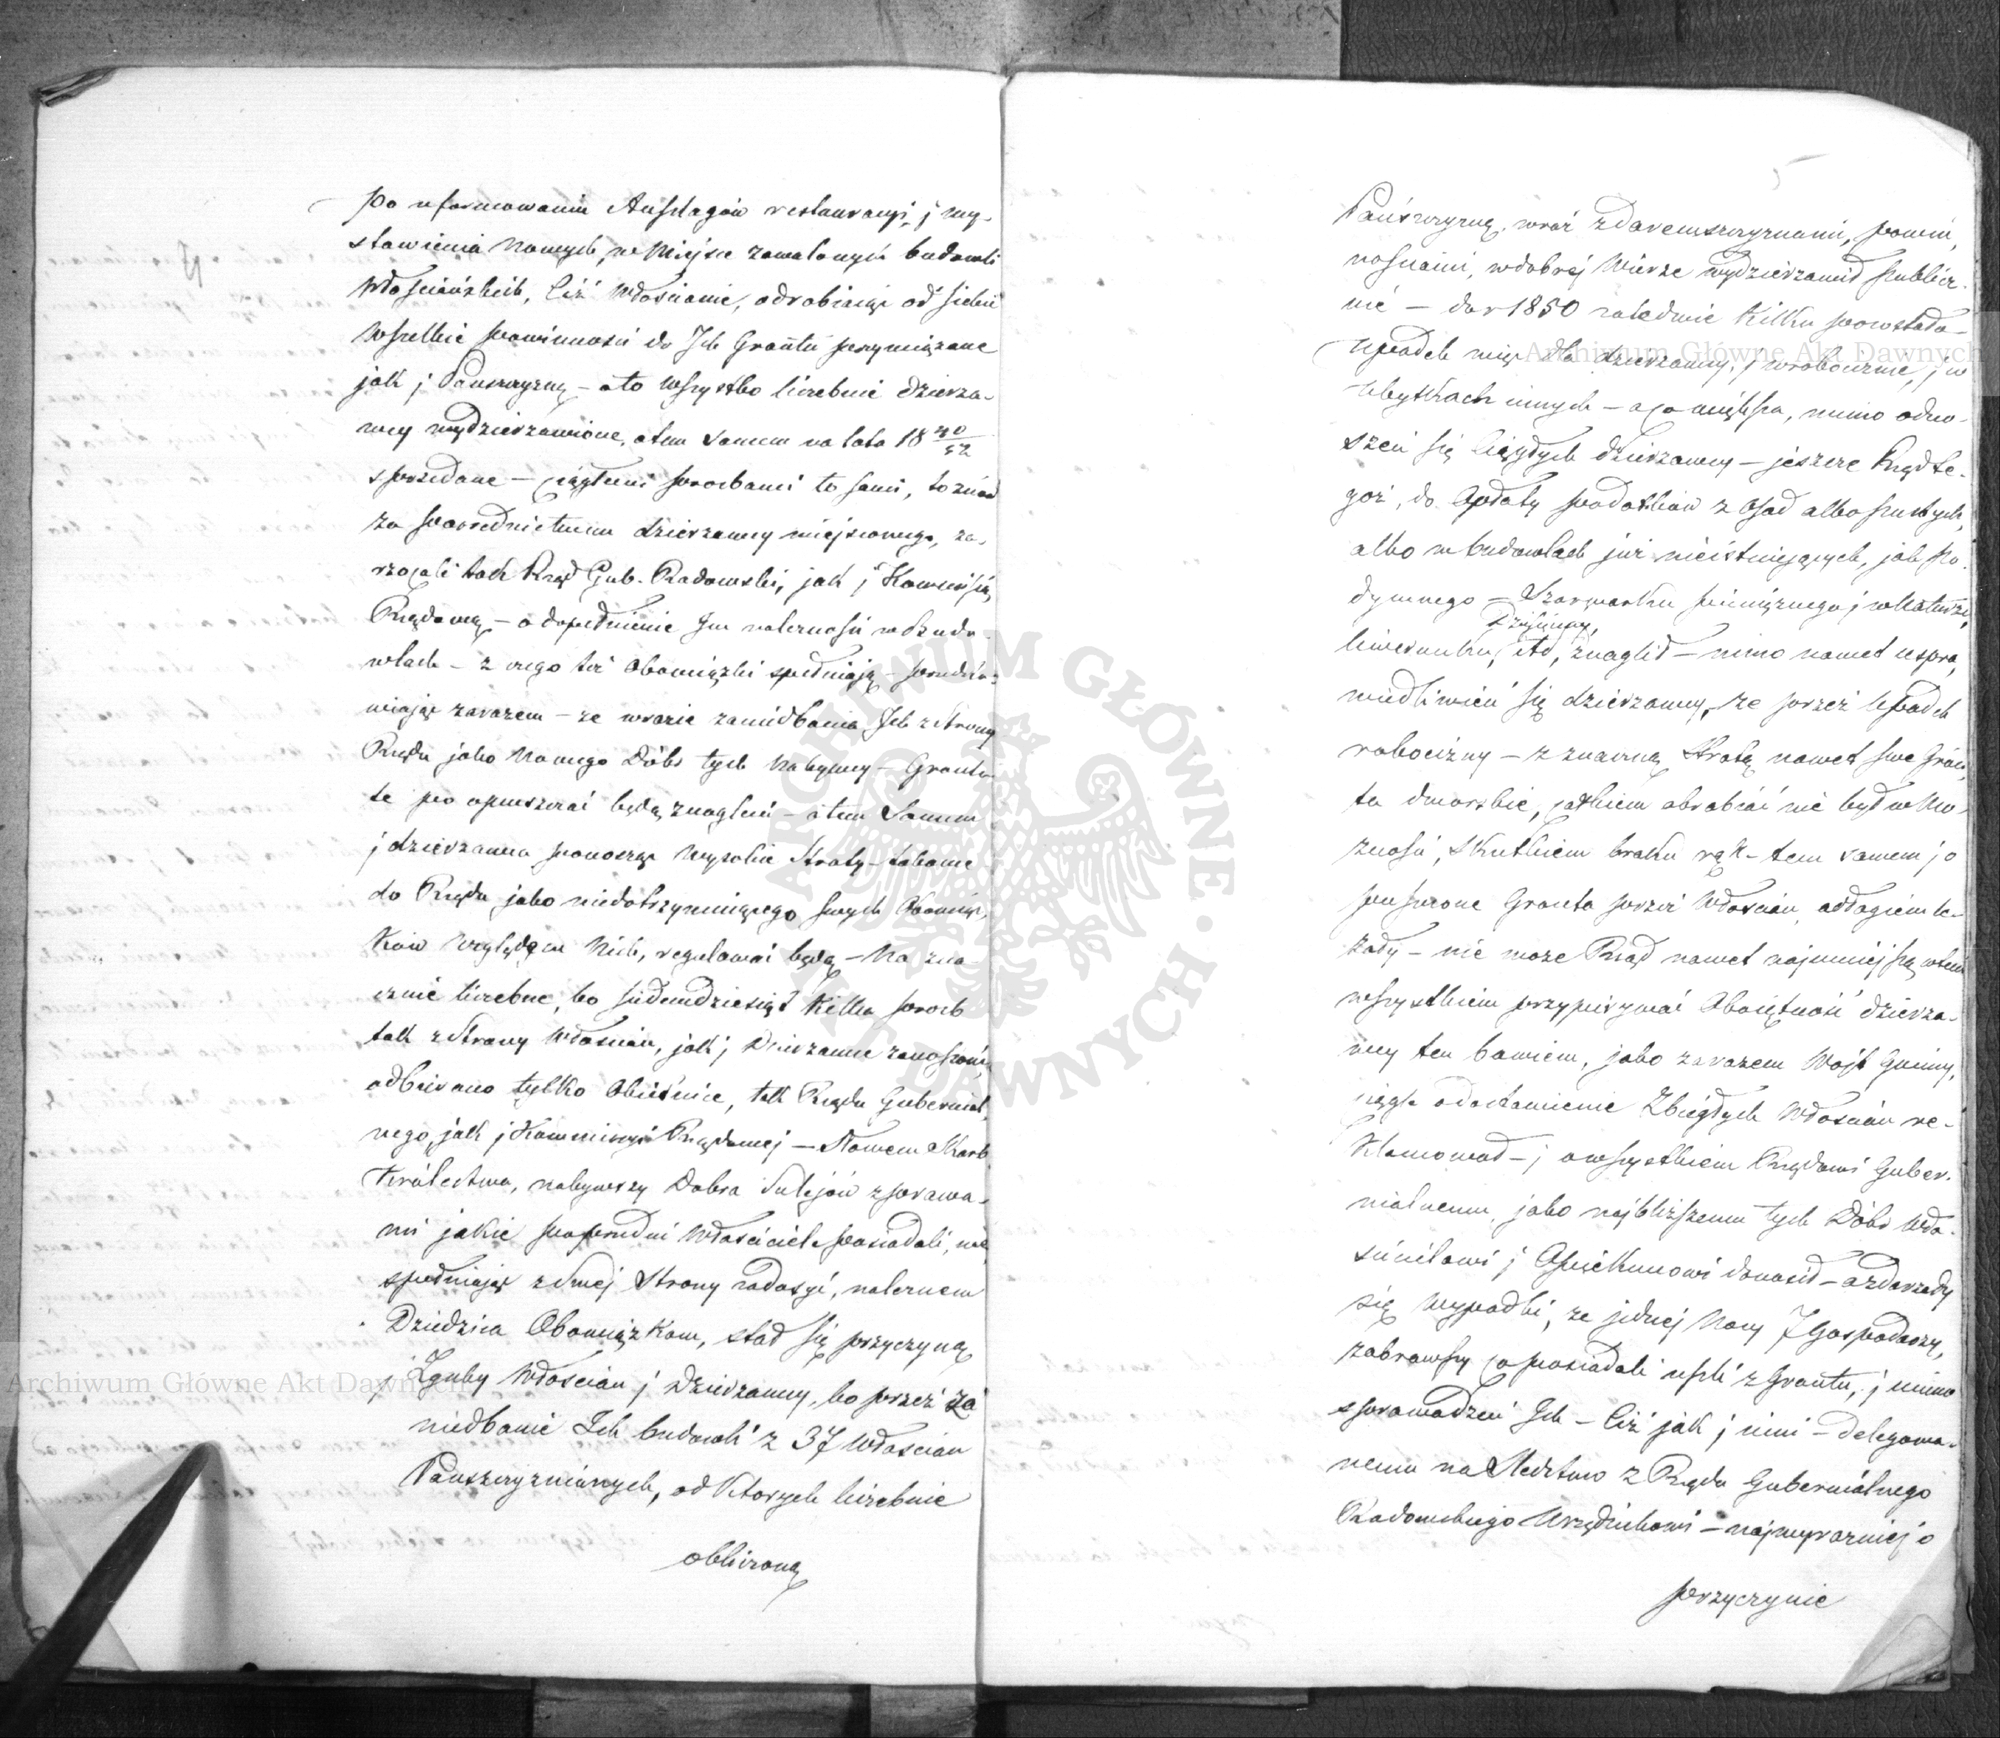 po uformowaniu Anschlagów restauracyi, j wy-
stawienia nowych, w Miejsce zawalonych budowli
Włościańskich, Ciż Włościanie, odrabiając od siebie
wszelkie powinności do Ich Gruntu przywiązane
jak j Pańszczyznę – a to wszystko liczebnie dzierża-
wcy wydzierżawione, a tem samem na lata 18 40/52
sprzedane – ciągłemi prośbami to sami, to znów
za pośrednictwem dzierżawcy miejscowego, za-
rzucali tak Rząd Gub. Radomski, jak j Kommissią
Rządową – o dopełnienie Im należności w Budo-
wlach – z czego też Obowiązki spełniają – przedsta-
wiając zarazem – że wrazie zaniedbania Ich z Strony
Rządu jako Nowego Dóbr tych Nabywcy – Grunta
te po opuszczać będą znagleni – a tem Samem
j dzierżawca ponosząc wysokie Straty – takowe
do Rządu jako niedotrzymującego swych Obowiąz-
ków względem Nich, regulować będą – Na zna-
cznie liczebne, bo siedemdziesiąt kilka prośb
tak z Strony Włościan, jak j Dzierżawcę zanoszone,
odbierano tylko Obietnice, tak Rządu Gubernial-
nego, jak j Kommissyi Rządowej – Słowem Skarb
Królestwa, nabywszy Dobra Sulejów z prawa-
mi jakie poprzedni Właściciele posiadali, nie
spełniając z Swej Strony zadosyć, należnem
Dziedzica Obowiązkom, stał się przyczyną
j Zguby Włościan j Dzierżawcy, bo przez Za
niedbanie Ich budowli z 37 Włościan
Pańszczyznianych, od których liczebnie
obliczoną
5
Pańszczyznę, wraz z daremszczyznami, powin-
nościami, w dobrej Wierze wydzierżawił publicz-
nie – do r 1850 zaledwie Kilku pozostało –
Upadek więc dla dzierżawcy, j w robociznie, j w
Użytkach innych – a co większa, mimo odno-
szeń się Ciągłych dzierżawcy – jeszcze Rząd te-
goż, do Opłaty podatków z Osad albo pustych,
albo w budowlach już nieistniejących, jak po-
dymnego – Szarwarku pieniężnego j w Naturze,
liwerunku, etc, znaglił – mimo nawet uspra-
wiedliwień się dzierżawcy, że przez Upadek
robocizny – z znaczną Stratą nawet swe Grun-
ta dworskie, całkiem obrabiać nie był w Mo-
żności, skutkiem braku rąk – tem samem j o
puszczone Grunta przez Włościan, odłogiem le-
żały – nie może Rząd nawet najmniejszą w tem
wszystkiem przypisywać Obojętność dzierża-
wcy ten bowiem, jako zarazem Wójt Gminy,
ciągle o dostawienie Zbiegłych Włościan re-
klamował – j o wszystkiem Rządowi Guber-
nialnemu, jako najbliższemu tych Dóbr Wła-
ścicielowi j Opiekunowi donosił – a zdarzały
się wypadki, że jednej Nocy 7 Gospodarzy,
zabrawszy co posiadali uszli z Gruntu, j mimo
sprowadzeń Ich – Ciż jak j inni – delegowa-
nemu na Śledztwo z Rządu Gubernialnego
Radomskiego Urzędnikowi – najwyraźniej o
przyczynie